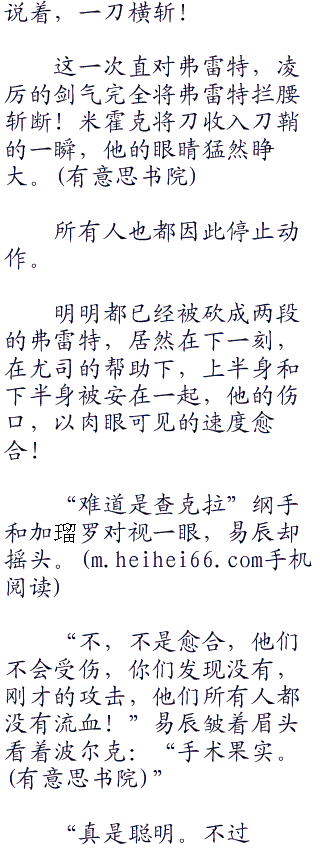 说着，一刀横斩！
这一次直对弗雷特，凌
厉的剑气完全将弗雷特拦腰
斩断！米霍克将刀收入刀鞘
的一瞬，他的眼睛猛然睁
大。(有意思书院)
所有人也都因此停止动
作。
明明都已经被砍成两段
的弗雷特，居然在下一刻，
在尤司的帮助下，上半身和
下半身被安在一起，他的伤
口，以肉眼可见的速度愈
合！
“难道是查克拉”纲手
和加瑠罗对视一眼，易辰却
摇头。(m.heihei66.com手机
阅读)
“不，不是愈合，他们
不会受伤，你们发现没有，
刚才的攻击，他们所有人都
没有流血！”易辰皱着眉头
看着波尔克：“手术果实。
(有意思书院)”
“真是聪明。不过